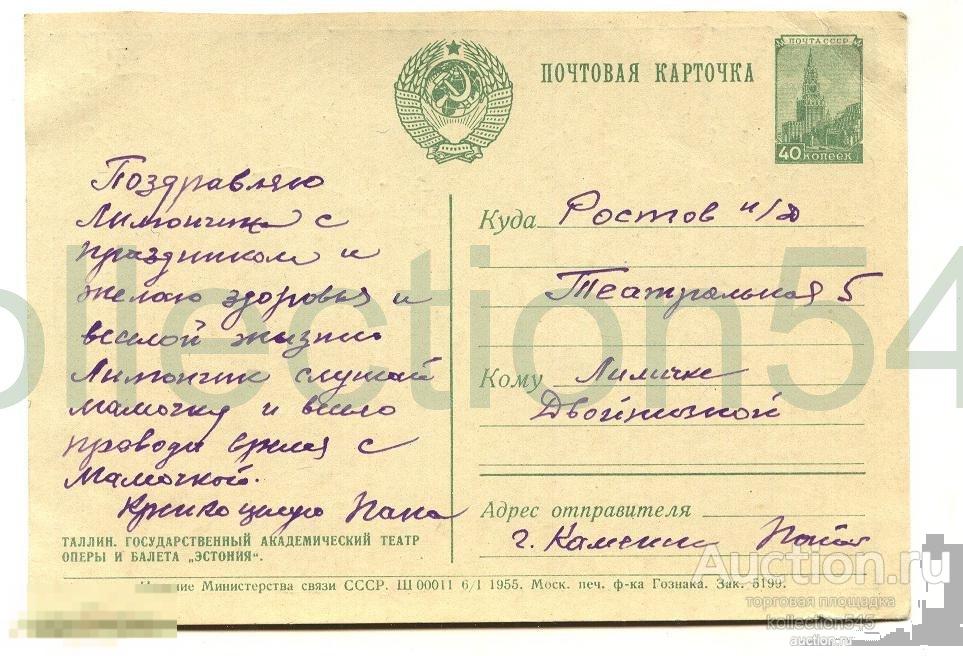 ПОЧТОВАЯ КАРТОЧКА
ПОЧТА СССР
40 КОПЕЕК
Поздравляю
Лимончик с
праздником и
желаю здоровья и
веселой жизни
Лимончик слушай
мамочку и весело
проводи время с
Мамочкой.
Крепко целую Папа
ТАЛЛИН. ГОСУДАРСТВЕННЫЙ АКАДЕМИЧЕСКИЙ ТЕАТР
ОПЕРЫ И БАЛЕТА „ЭСТОНИЯ“.
Куда Ростов н/Д
Театральная 5
Кому Лиличке
Двойниковой
Адрес отправителя
г. Каменск
Издание Министерства связи СССР. Щ 00011 6/I 1955. Моск. печ. ф-ка Гознака. Зак. 5199.
ollection54
Auction.ru
торговая площадка
kollection545
auction.ru